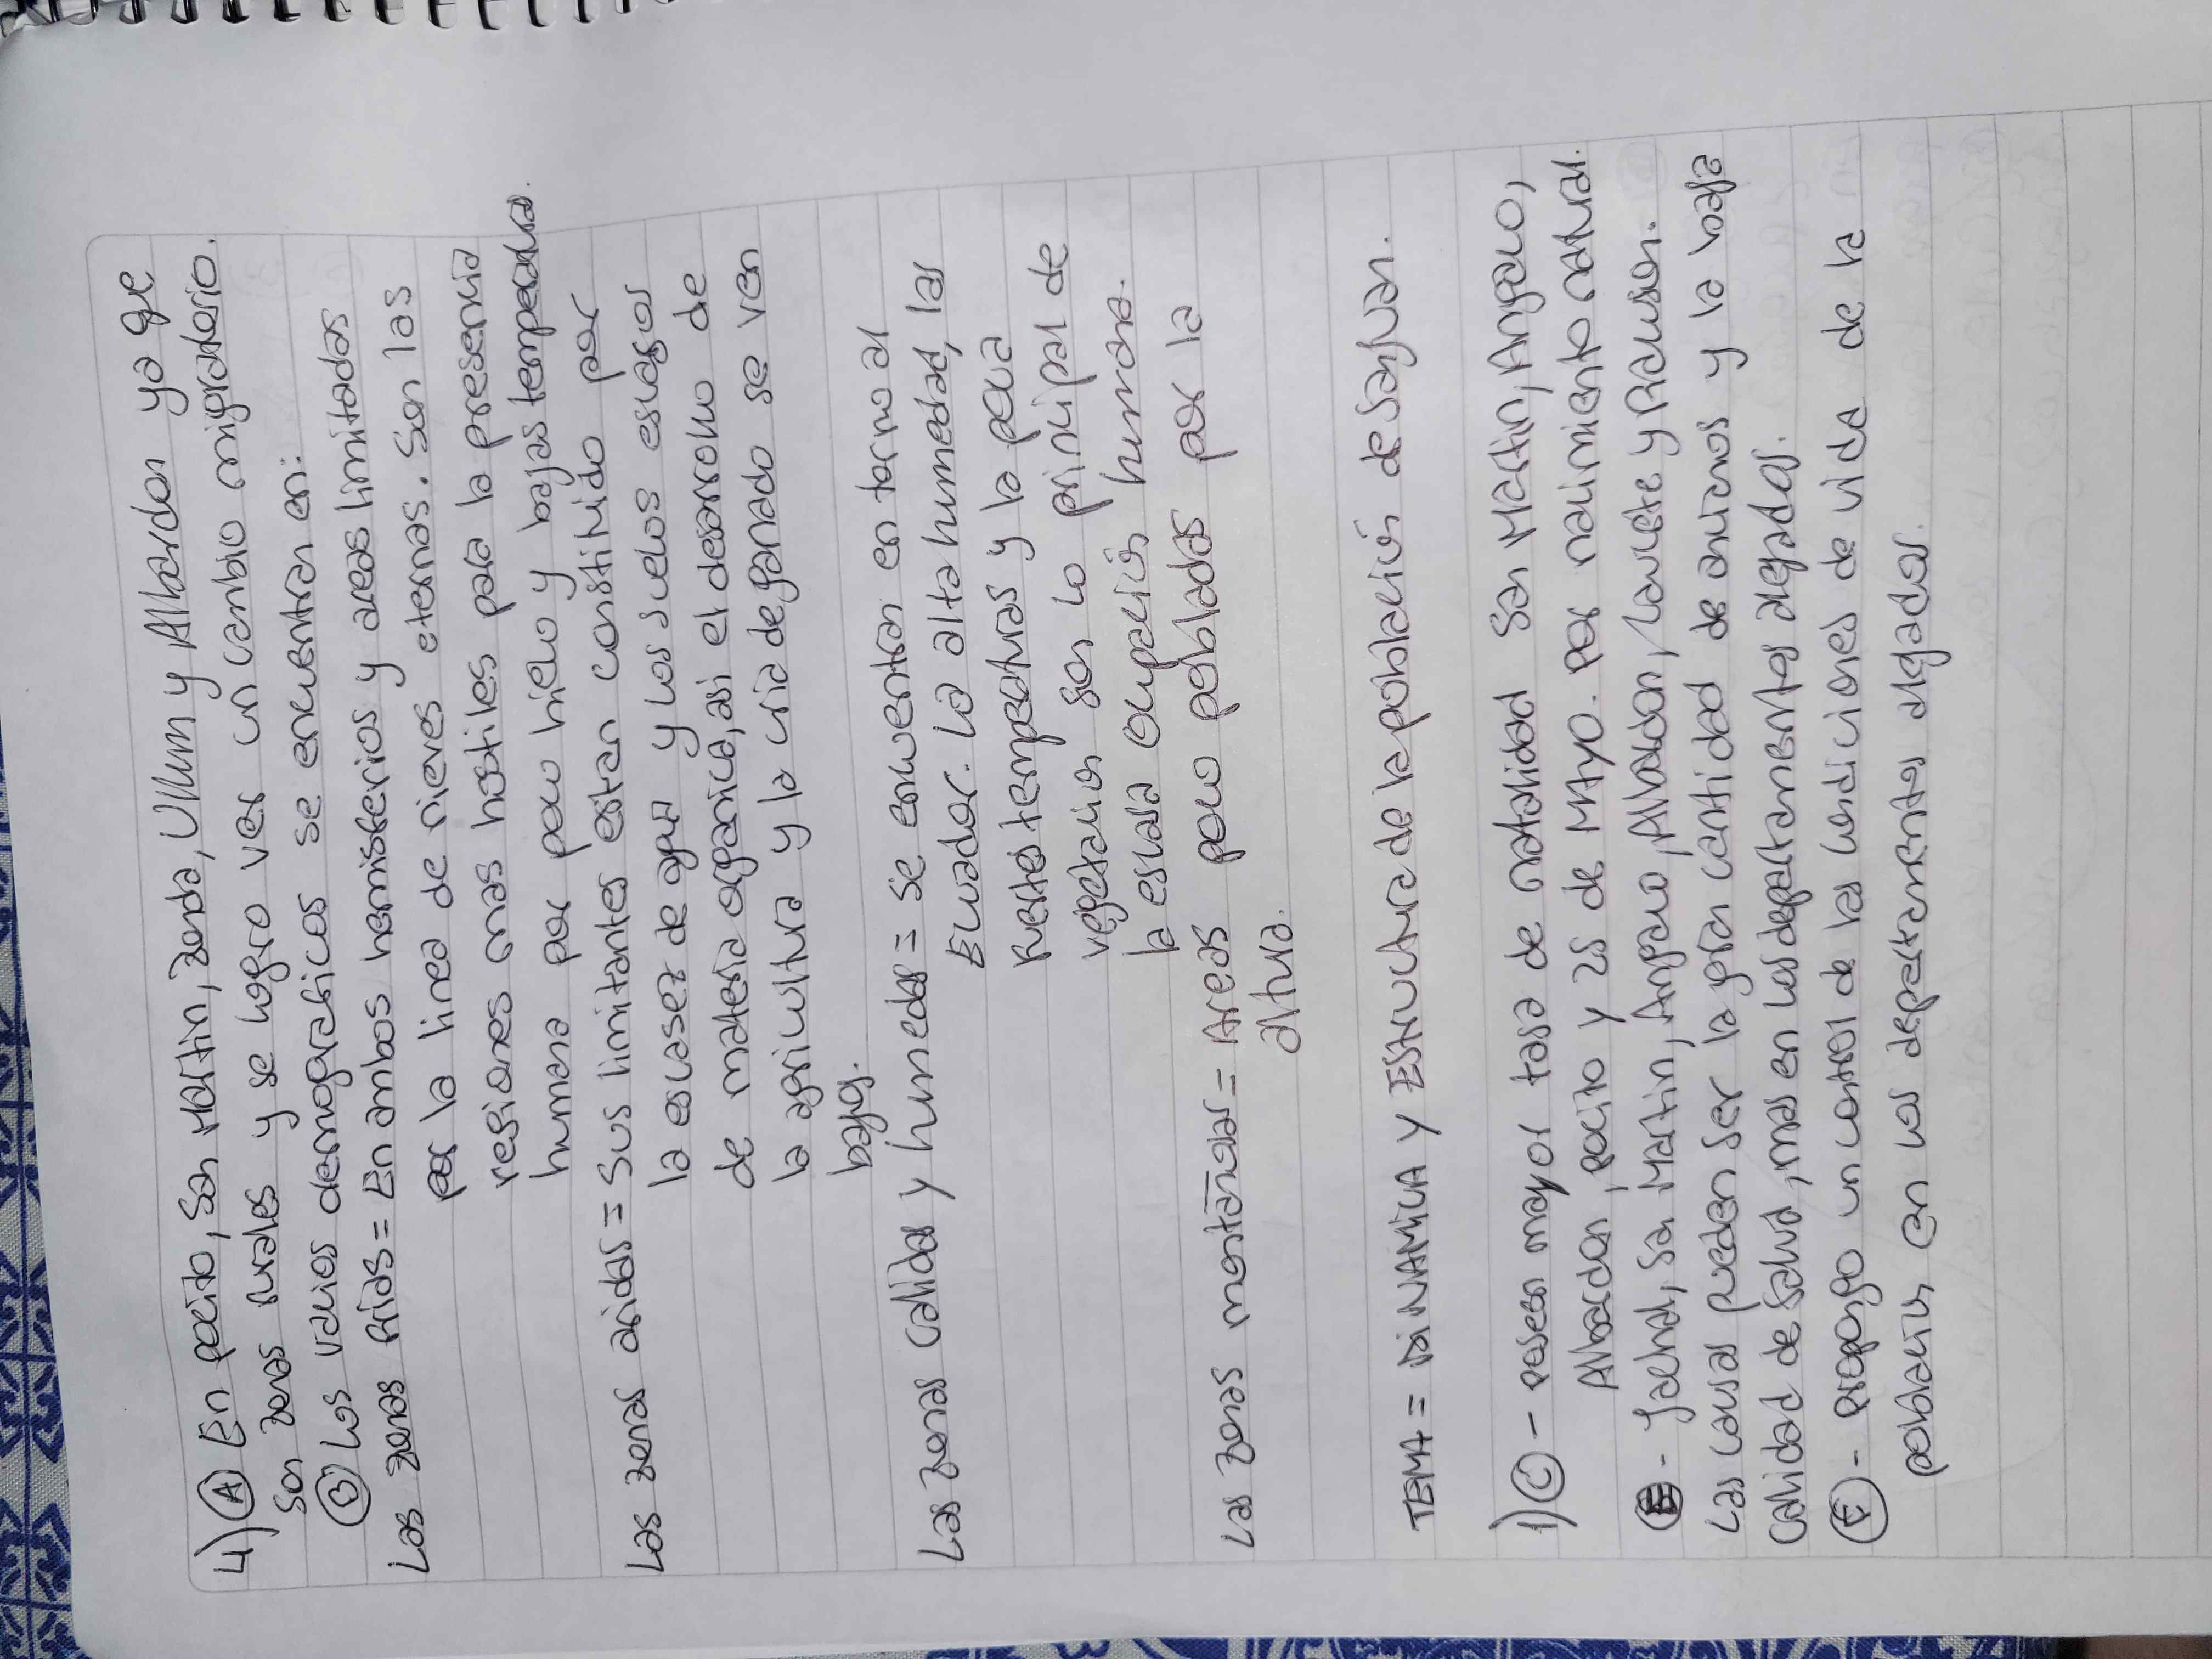 4) A En pocito, San Martin, Zonda, Ullum y Albardon ya qe
son zonas rurales y se logro ver un cambio migratorio.
B Los vacios demograficos se encuentran en:
Las zonas frias = En ambos hemisferios y areas limitadas
por la linea de nieves eternas. Son las
regiones mas hostiles para la presencia
humana por poco hielo y bajas temperaturas.
Las zonas aridas = Sus limitantes estan constituido por
la escasez de agua y los suelos escasos
de materia organica, asi el desarrollo de
la agricultura y la cria de ganado se ven
bajo.
Las zonas calidas y humedas = se encuentran en torno al
Ecuador. La alta humedad, las
fuertes temperaturas y la poca
vegetacion son lo principal de
la escasa ocupación humana.
Las zonas montañosas = Areas poco pobladas por la
altura.
TEMA = DINAMICA Y ESTRUCTURA de la población de San Juan.
1) C - Poseen mayor tasa de natalidad San Martin, Angaco,
Albardon, pocito y 25 de MAYO. por nacimiento natural.
E - Jachal, San Martin, Angaco, Albardon, Caucete y Rawson.
Las causas pueden ser la gran cantidad de ancianos y la baja
calidad de salud, mas en los departamentos alejados.
F - Propongo un control de las condiciones de vida de la
poblacion, en los departamentos alejados.